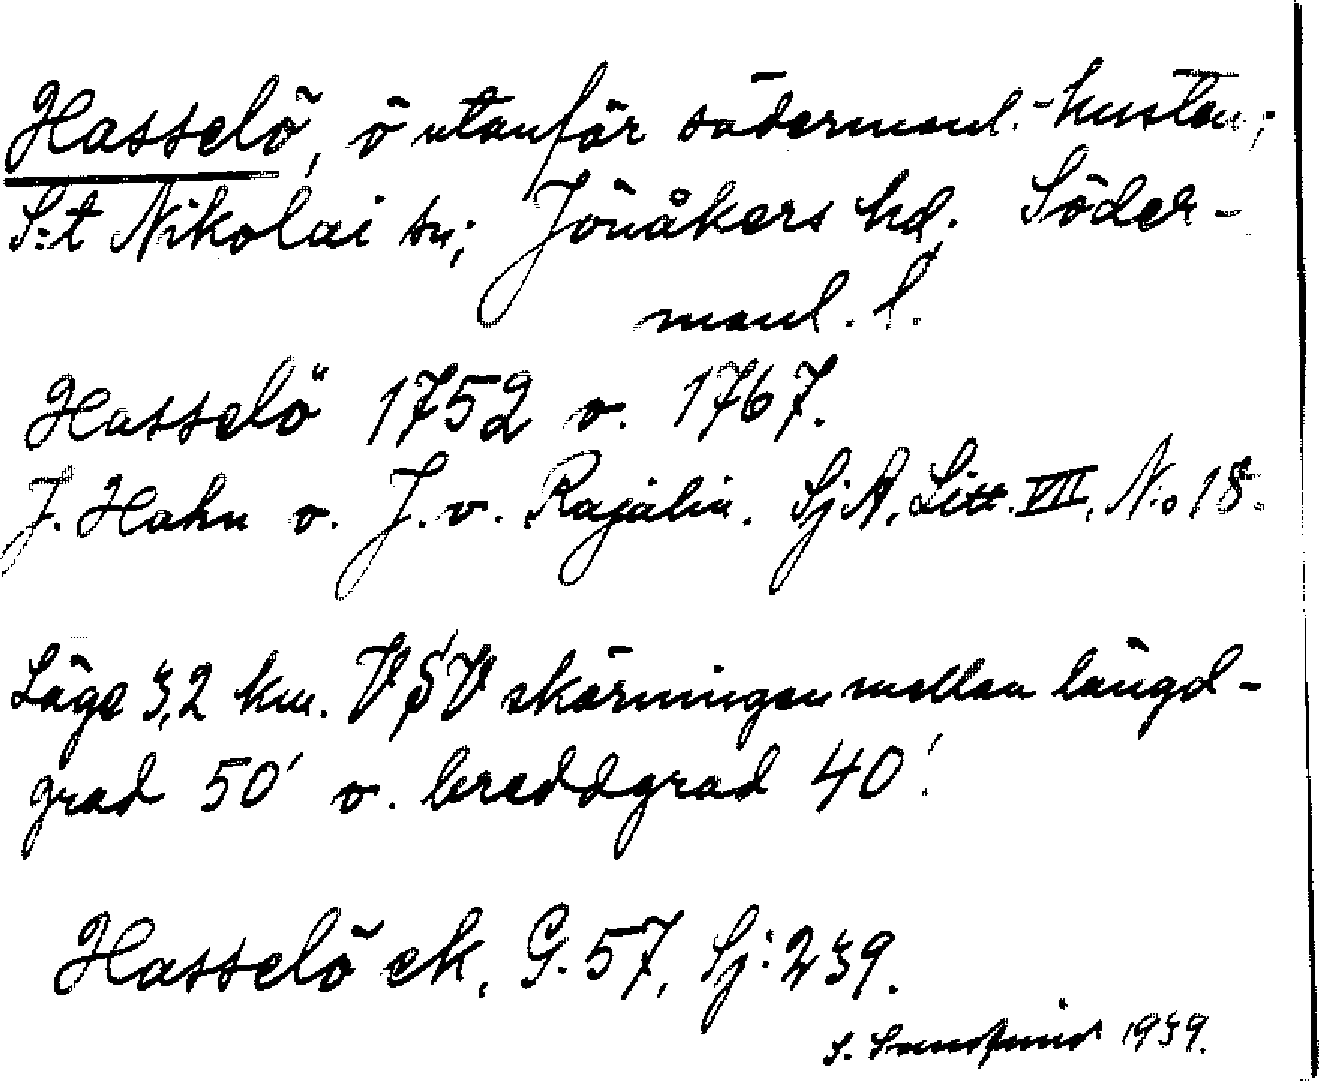 Hasselö, ö utanför södermanl.-kusten;
S:t Nikolai sn; Jönåkers hd. Söder-
manl. l.
Hasselö 1752 o. 1767.
J. Hahn o. J. v. Rajalin. SjA. Litt. VII, No 18.
Läge 3,2 km. VSV skärningen mellan längd-
grad 50' o. breddgrad 40'.
Hasselö ek. G. 57, Sj: 239.
S. 1939.